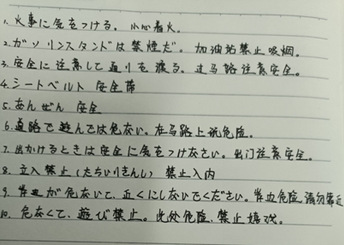 1. 火事に気をつける。小心着火。
2. ガソリンスタンドは禁煙だ。加油站禁止吸烟。
3. 安全に注意して通りを渡る。过马路注意安全。
4. シートベルト 安全带
5. あんぜん 安全
6. 道路で遊んでは危ない。在马路上玩危险。
7. 出かけるときは安全に気をつけなさい。出门注意安全。
8. 立入禁止(たちいりきんし) 禁止入内
9. 危ないで、近くにしないでください。危险,请勿靠近
10. 危なくて、遊び禁止。此处危险,禁止嬉戏。